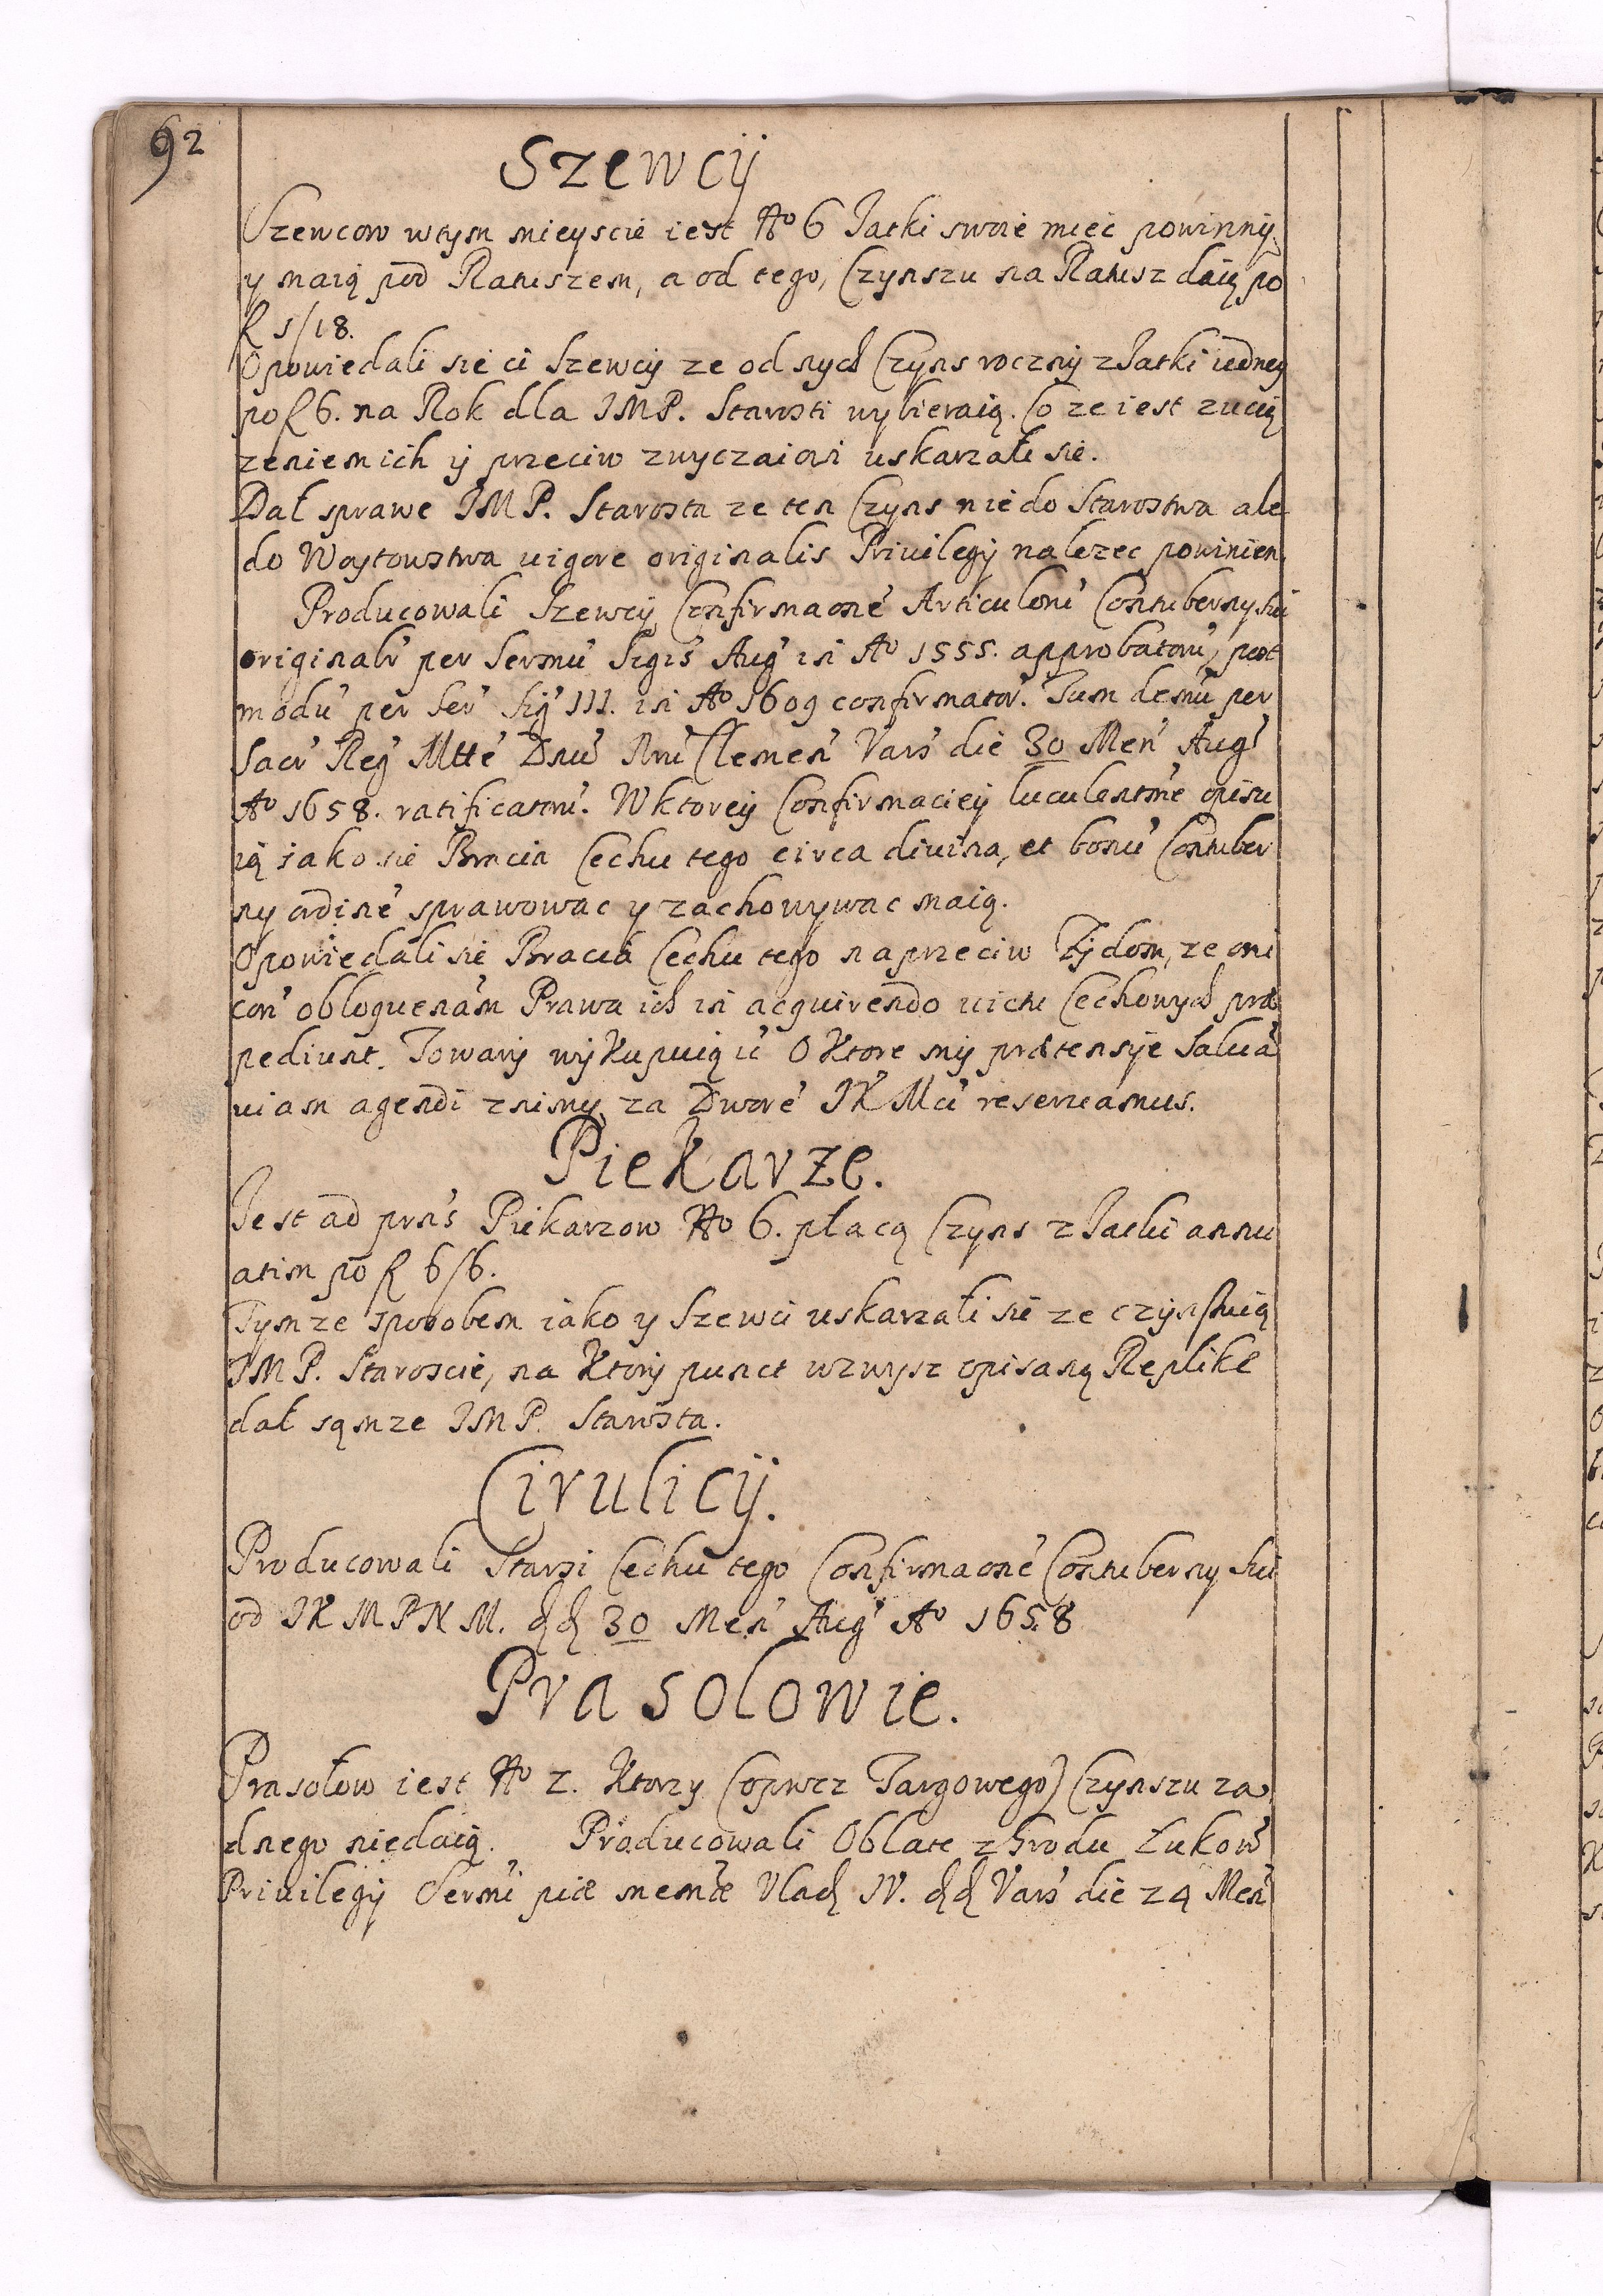 92
Szewcÿ
Szewcow wtym mieyscie iest No 6 Jatki swoie mieć powinnÿ
y maią pod Ratuszem, a od tego, Czynszu na Ratusz daią po
f 1/18.
Opowiedali sie ci Szewcÿ ze od nych Czyns rocznÿ z Jatki iedneÿ
po f 6. na Rok dla JMP. Starosti wybieraią. Co ze iest zucią
zeniem ich ÿ przeciw zwyczaiowi uskarzali sie.
Dał sprawe JMP. Starosta ze ten Czyns nie do Starostwa ale
do Woytowstwa uigore originalis Priuilegÿ nalezec powinien.
Producowali Szewcÿ Confirmaone Articulorū Contubernÿ sui
originalr per Sermū Sigis Aug in Ao 1555. approbatorū, post
modū per Ser Sig III. in Ao 1609 confirmator. Tum demū per
Sacr Reg Mtte Dnū Nrū Clemen Vars die 30 Men Aug
Ao 1658. ratificatorū. W ktoreÿ Confirmacieÿ luculentme opisu
ią iako sie Bracia Cechu tego circa diuina, et bonū Contuber
ny ordine sprawowac y zachowywac maią.
Opowiedali sie Bracia Cechu tego naprzeciw Zÿdom, ze oni
con obloquenam Prawa ich in acquirendo uictu Cechowych præ
pediunt. Towarÿ wÿkupuiąc O ktore mÿ prætensÿe Salua
uiam agendi znimy za Dwore JK Mci reseruamus.
Piekarze.
Jest ad prns Piekarzow No 6. płacą Czyns z Jatki annu
atim po f 6/6.
Tymze sposobem iako y Szewci uskarzali sie ze czynszuią
JMP. Staroscie, na ktorÿ punct wzwysz opisaną Replike
dał sąmze JMP. Starosta.
Cirulicÿ.
Producowali Starsi Cechu tego Confirmaone Contuberny sui
od JKMPNM. dd 30 Men Aug Ao 1658
Prasolowie.
Prasołow iest No 2. Ktorzy (oprocz Targowego) Czynszu za
dnego niedaią. Producowali Oblate z Grodu Łukow
Priuilegÿ Sermi piæ memæ Vlad IV. dd Vars die 24 Men